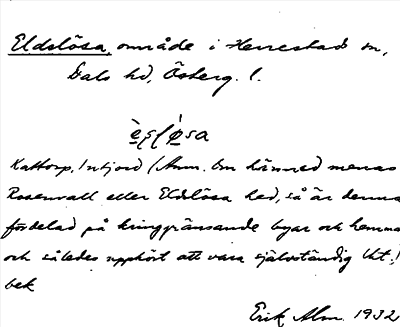 Eldslösa, område i Herrestad sn,
Dals hd, Österg. l.
Kattorp, Intjord (Anm. Om härmed menas
Rosenvall eller Eldslösa hed, så är denna
fördelad på kringgränsande byar och hemma
och således upphört att vara självständig lht.)
bek
Erik Alm. 1932